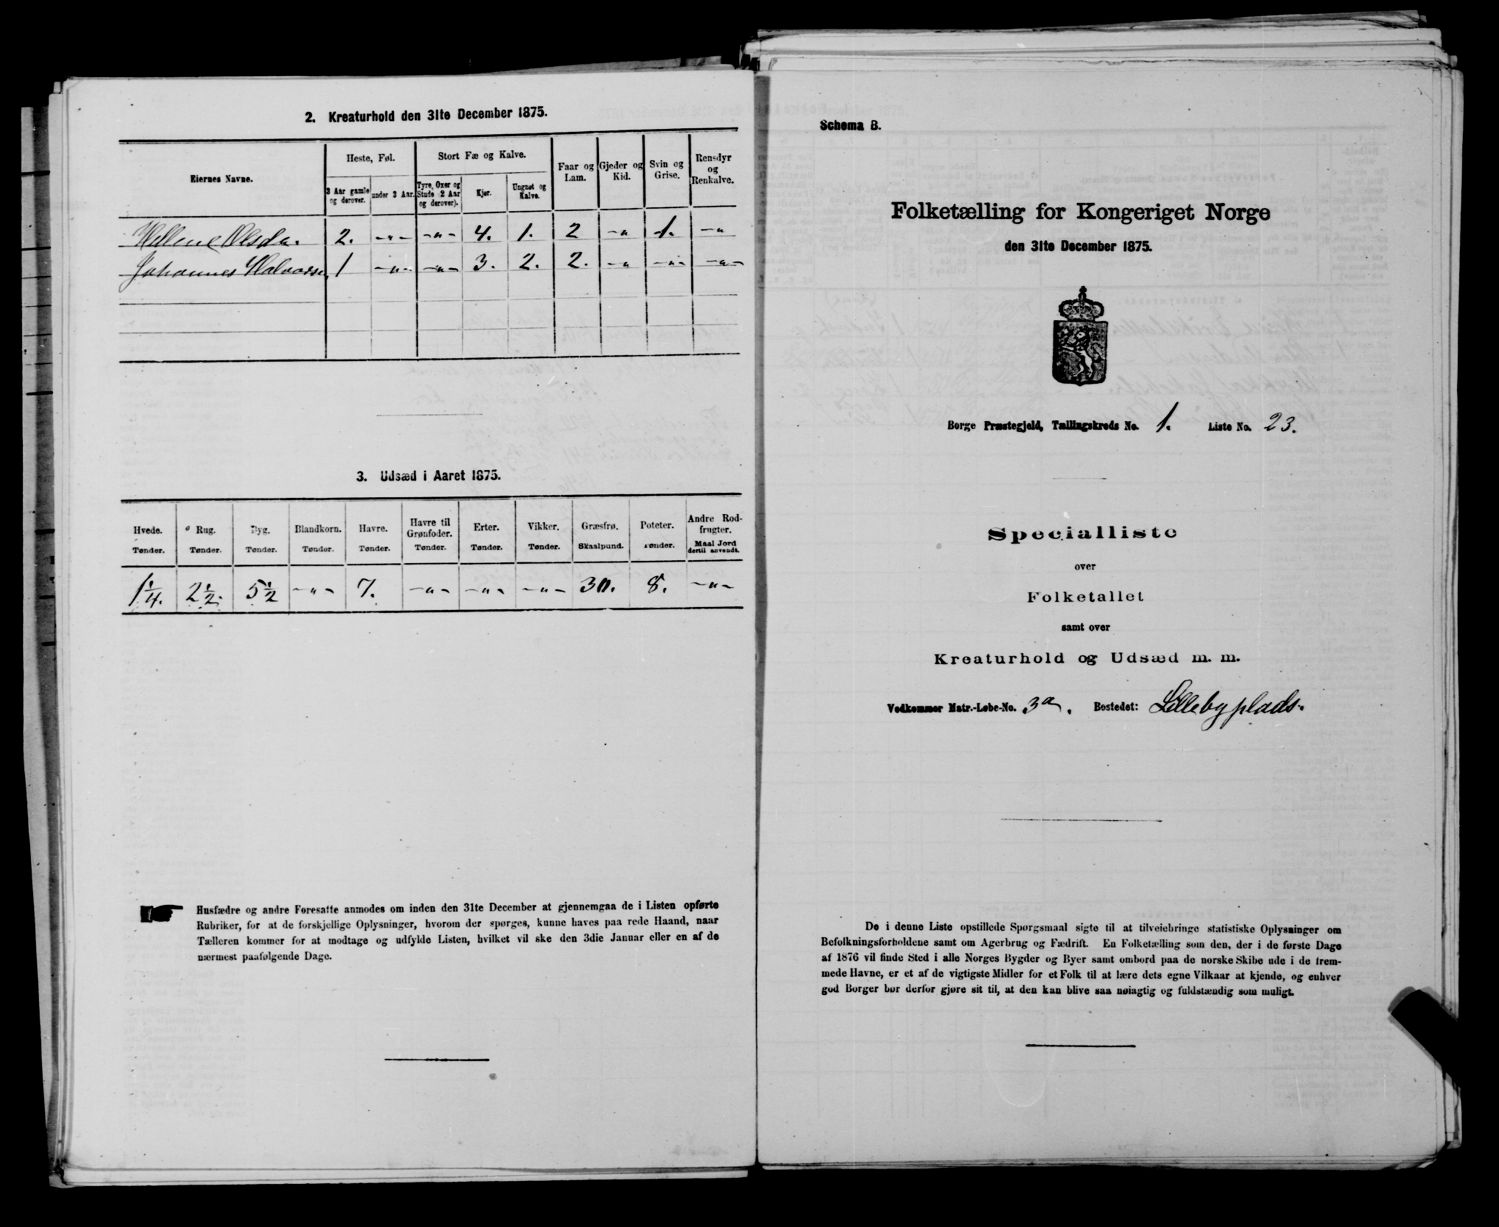 2. Kreaturhold den 31te December 1875.
Eiernes Navne.
Heste, Føl.
Stort Fæ og Kalve.
Faar og Lam.
Gjeder og Kid.
Svin og Grise.
Rensdyr og Renkalve.
3 Aar gamle og derover.
under 3 Aar.
Tyre, Oxer og Stude 2 Aar og derover).
Kjør.
Ungnøt og Kalve.
Hellene Olsda. 2. -"- -"- 4. 1. 2 -" 1. -"
Johannes Halvorsen 1 -"- -"- 3. 2. 2. -" -"- -"-
3. Udsæd i Aaret 1875.
Hvede. Rug. Byg. Blandkorn. Havre. Havre til Grønfoder. Erter. Vikker. Græsfrø. Poteter. Andre Rodfrugter.
Tønder. Tønder. Tønder. Tønder. Tønder. Tønder. Tønder. Tønder. Skaalpund. Tønder. Maal Jord dertil anvendt.
1/4. 2 1/2. 5 1/2 -"- 7. -"- -"- -"- 30. 8. -"-
Husfædre og andre Foresatte anmodes om inden den 31te December at gjennemgaa de i Listen opførte
Rubriker, for at de forskjellige Oplysninger, hvorom der spørges, kunne haves paa rede Haand, naar
Tælleren kommer for at modtage og udfylde Listen, hvilket vil ske den 3die Januar eller en af de
nærmest paafølgende Dage.
Schema B.
Folketælling for Kongeriget Norge
den 31te December 1875.
Borge Præstegjeld, Tællingskreds No. 1. Liste No. 23.
Specialliste
over
Folketallet
samt over
Kreaturhold og Udsæd m. m.
Vedkommer Matr.-Løbe-No. 3a. Bostedet: Lillebyplads.
De i denne Liste opstillede Spørgsmaal sigte til at tilveiebringe statistiske Oplysninger om
Befolkningsforholdene samt om Agerbrug og Fædrift. En Folketælling som den, der i de første Dage
af 1876 vil finde Sted i alle Norges Bygder og Byer samt ombord paa de norske Skibe ude i de frem-
mede Havne, er et af de vigtigste Midler for et Folk til at lære dets egne Vilkaar at kjende, og enhver
god Borger bør derfor gjøre sit til, at den kan blive saa nøiagtig og fuldstændig som muligt.